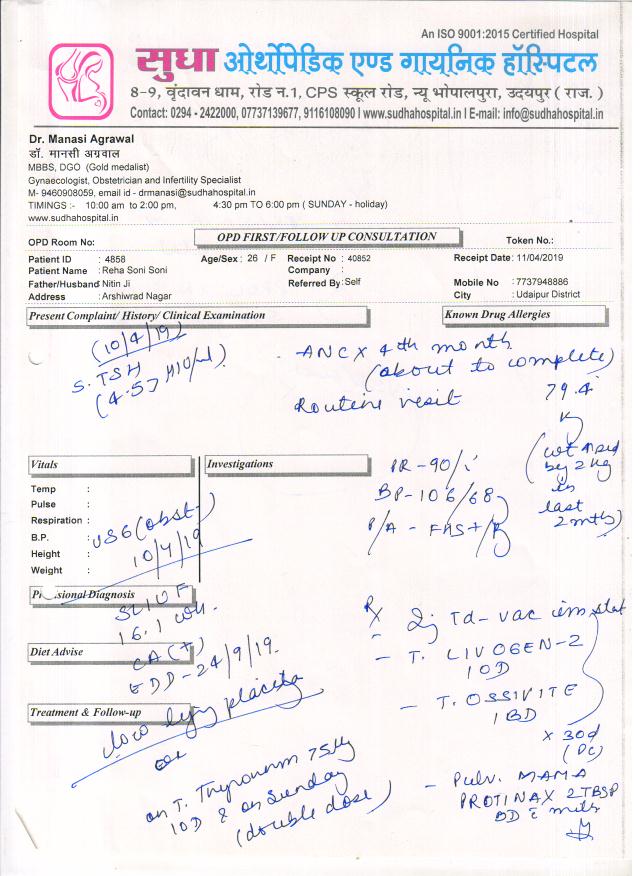 An ISO 9001:2015 Certified Hospital
सुधा ओर्थोपेडिक एण्ड गायनिक हॉस्पिटल
8-9, वृंदावन धाम, रोड न.1, CPS स्कूल रोड, न्यू भोपालपुरा, उदयपुर ( राज. )
Contact: 0294 - 2422000, 07737139677, 9116108090 I www.sudhahospital.in I E-mail: info@sudhahospital.in
Dr. Manasi Agrawal
डॉ. मानसी अग्रवाल
MBBS, DGO (Gold medalist)
Gynaecologist, Obstetrician and Infertility Specialist
M- 9460908059, email id - drmanasi@sudhahospital.in
TIMINGS :- 10:00 am to 2:00 pm, 4:30 pm TO 6:00 pm ( SUNDAY - holiday)
www.sudhahospital.in
OPD Room No: OPD FIRST/FOLLOW UP CONSULTATION Token No.:
Patient ID : 4858 Age/Sex : 26 / F Receipt No : 40852 Receipt Date: 11/04/2019
Patient Name : Reha Soni Soni Company :
Father/Husband Nitin Ji Referred By : Self Mobile No : 7737948886
Address : Arshiwrad Nagar City : Udaipur District
Present Complaint/ History/ Clinical Examination Known Drug Allergies
(10/4/19)
S. TSH
(4.57
- ANC X 4th month
(about to complete)
Routine visit
79.4
K
(wt
by 2 kg
in
last
2 mths)
Vitals Investigations
Temp :
Pulse :
Respiration :
B.P. :
Height :
Weight :
PR - 90/
BP - 106/68
P/A - FHS +
USG (obst)
10/4/19
Provisional Diagnosis
SLIUF
16.1
CA (+)
EDD - 24/9/19.
Diet Advise
Treatment & Follow-up
low lying placenta
on T. Thyronorm 75
1 OD & on Sunday
(double dose)
Rx
Inj Td-vac im stat
- T. LIVOGEN-Z
1 OD
- T. OSSIVITE
1 BD
x 30d
(PC)
- Pulv. MAMA
PROTINAX 2 TBSP
BD c milk